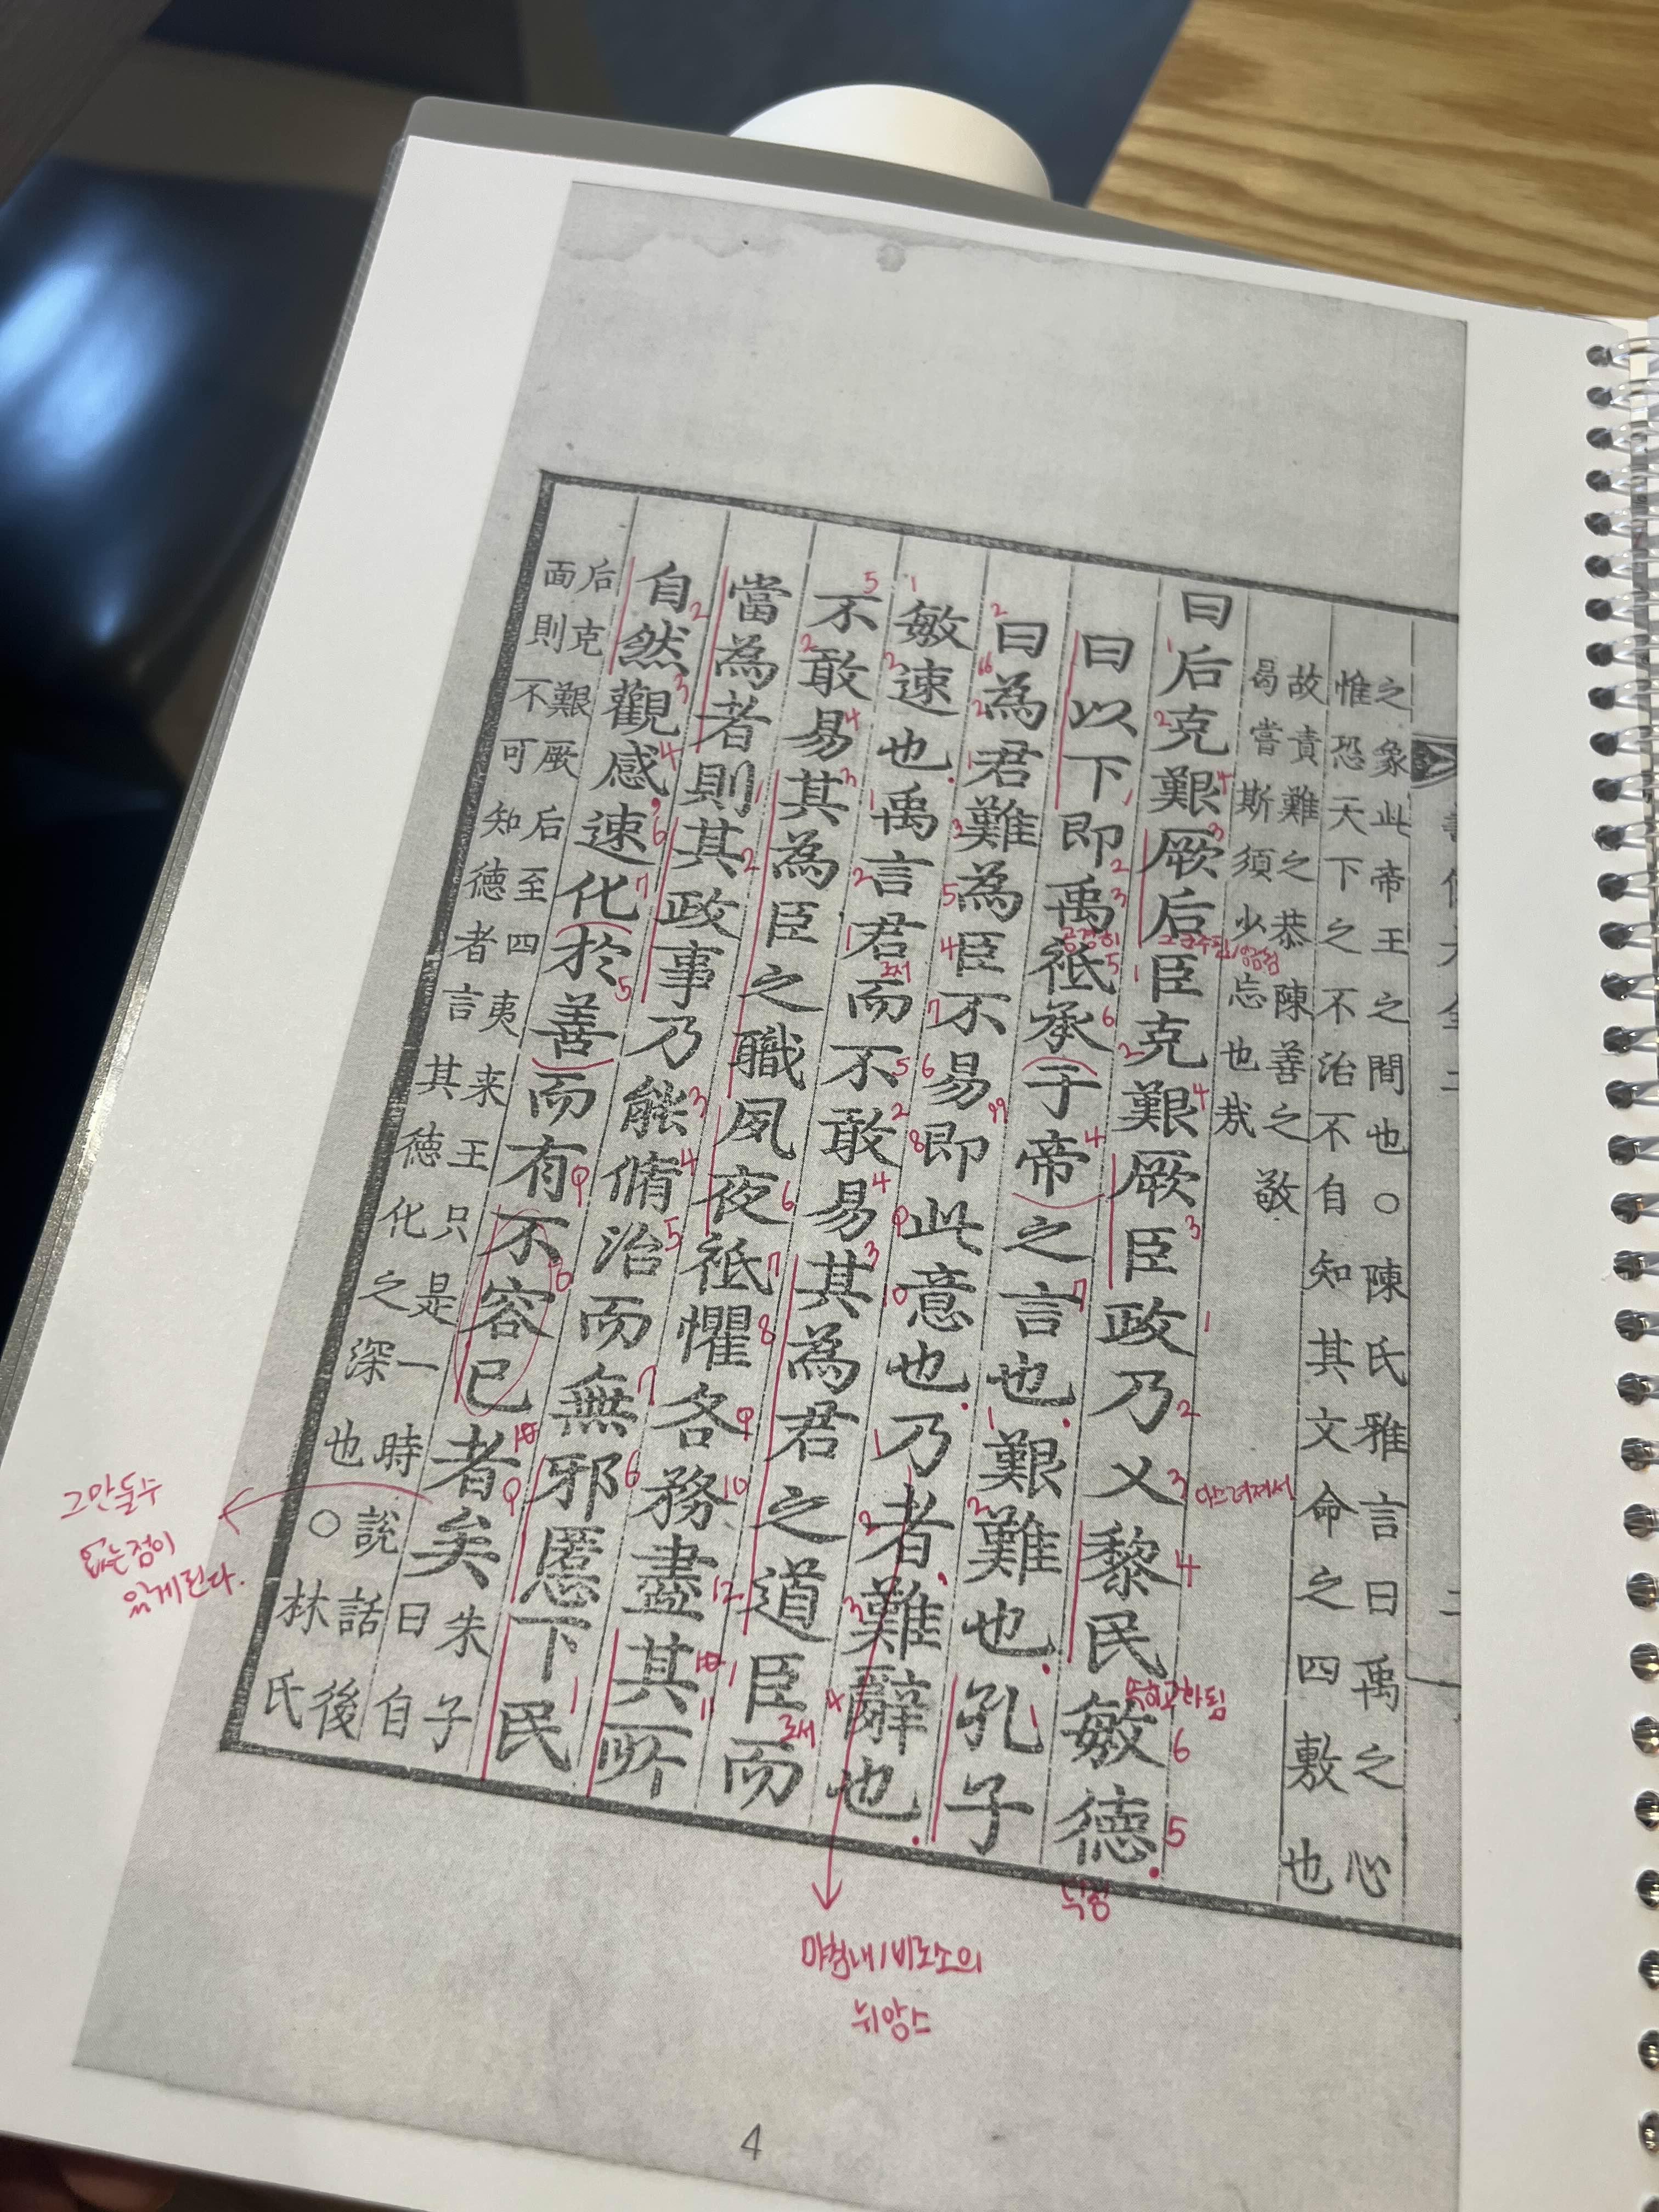 之象此帝王之間也○陳氏雅言曰禹之心
惟恐天下之不治不自知其文命之四敷也
故責難之恭陳善之敬
曷嘗斯須少忘也哉
曰后克艱厥后臣克艱厥臣政乃乂黎民敏德
曰以下即禹祗承于帝之言也艱難也孔子
曰為君難為臣不易即此意也乃者難辭也
敏速也禹言君而不敢易其為君之道臣而
不敢易其為臣之職夙夜祗懼各務盡其所
當為者則其政事乃能脩治而無邪慝下民
自然觀感速化於善而有不容已者矣
朱子
曰自
后克艱厥后至四夷来王只是一時說話後
面則不可知德者言其德化之深也○林氏
공경히
로서
로서
다스려져서
마침내/비로소의
뉘앙스
그만둘수
없는점이
있게된다.
4